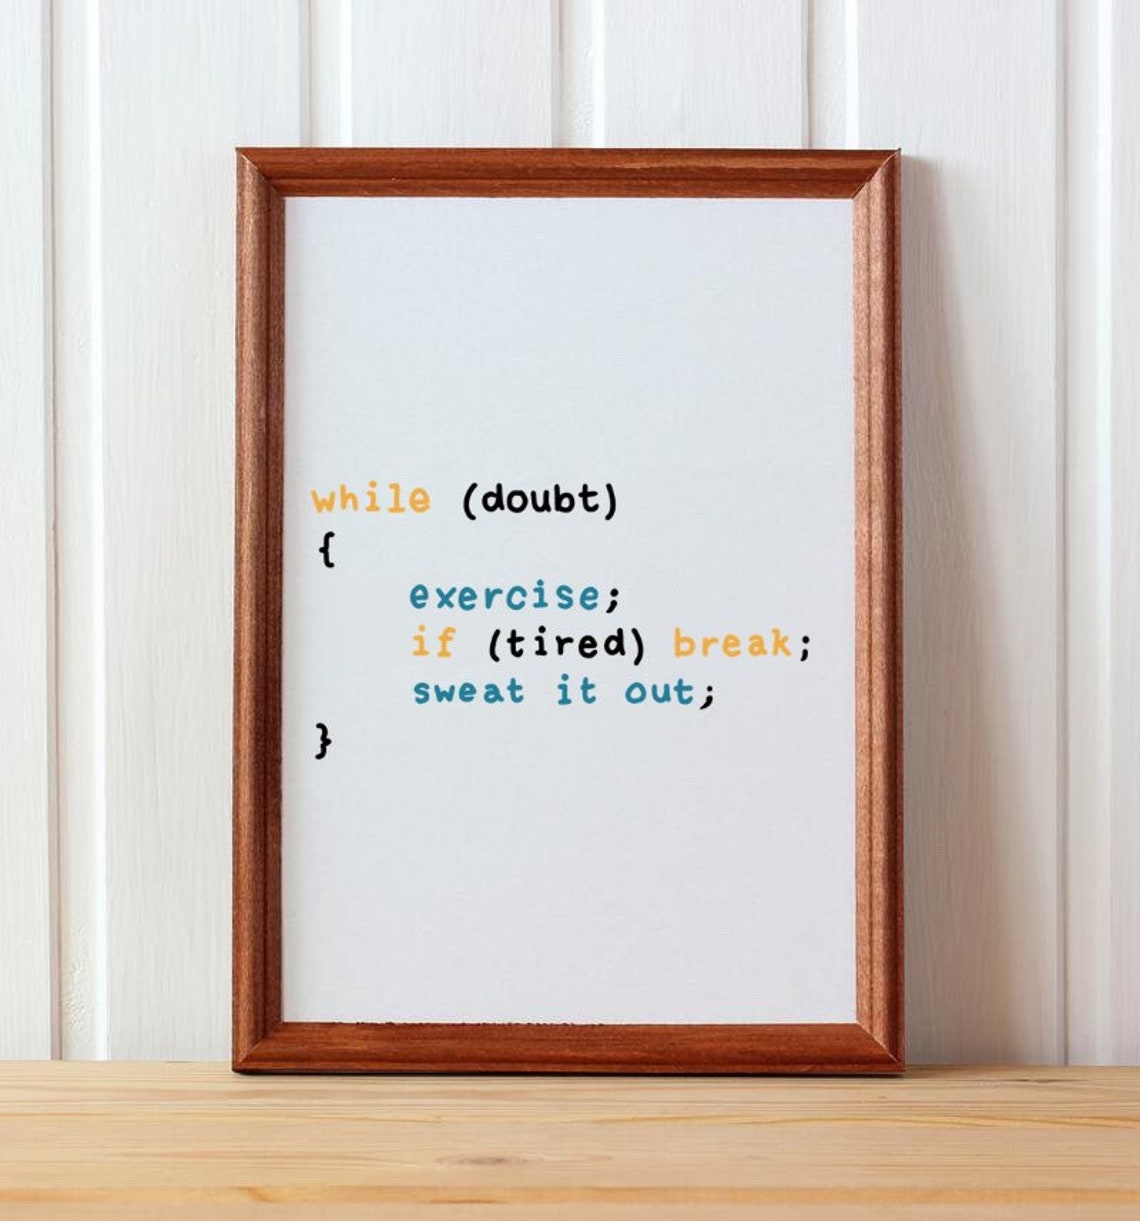 while (doubt)
{
exercise;
if (tired) break;
sweat it out;
}